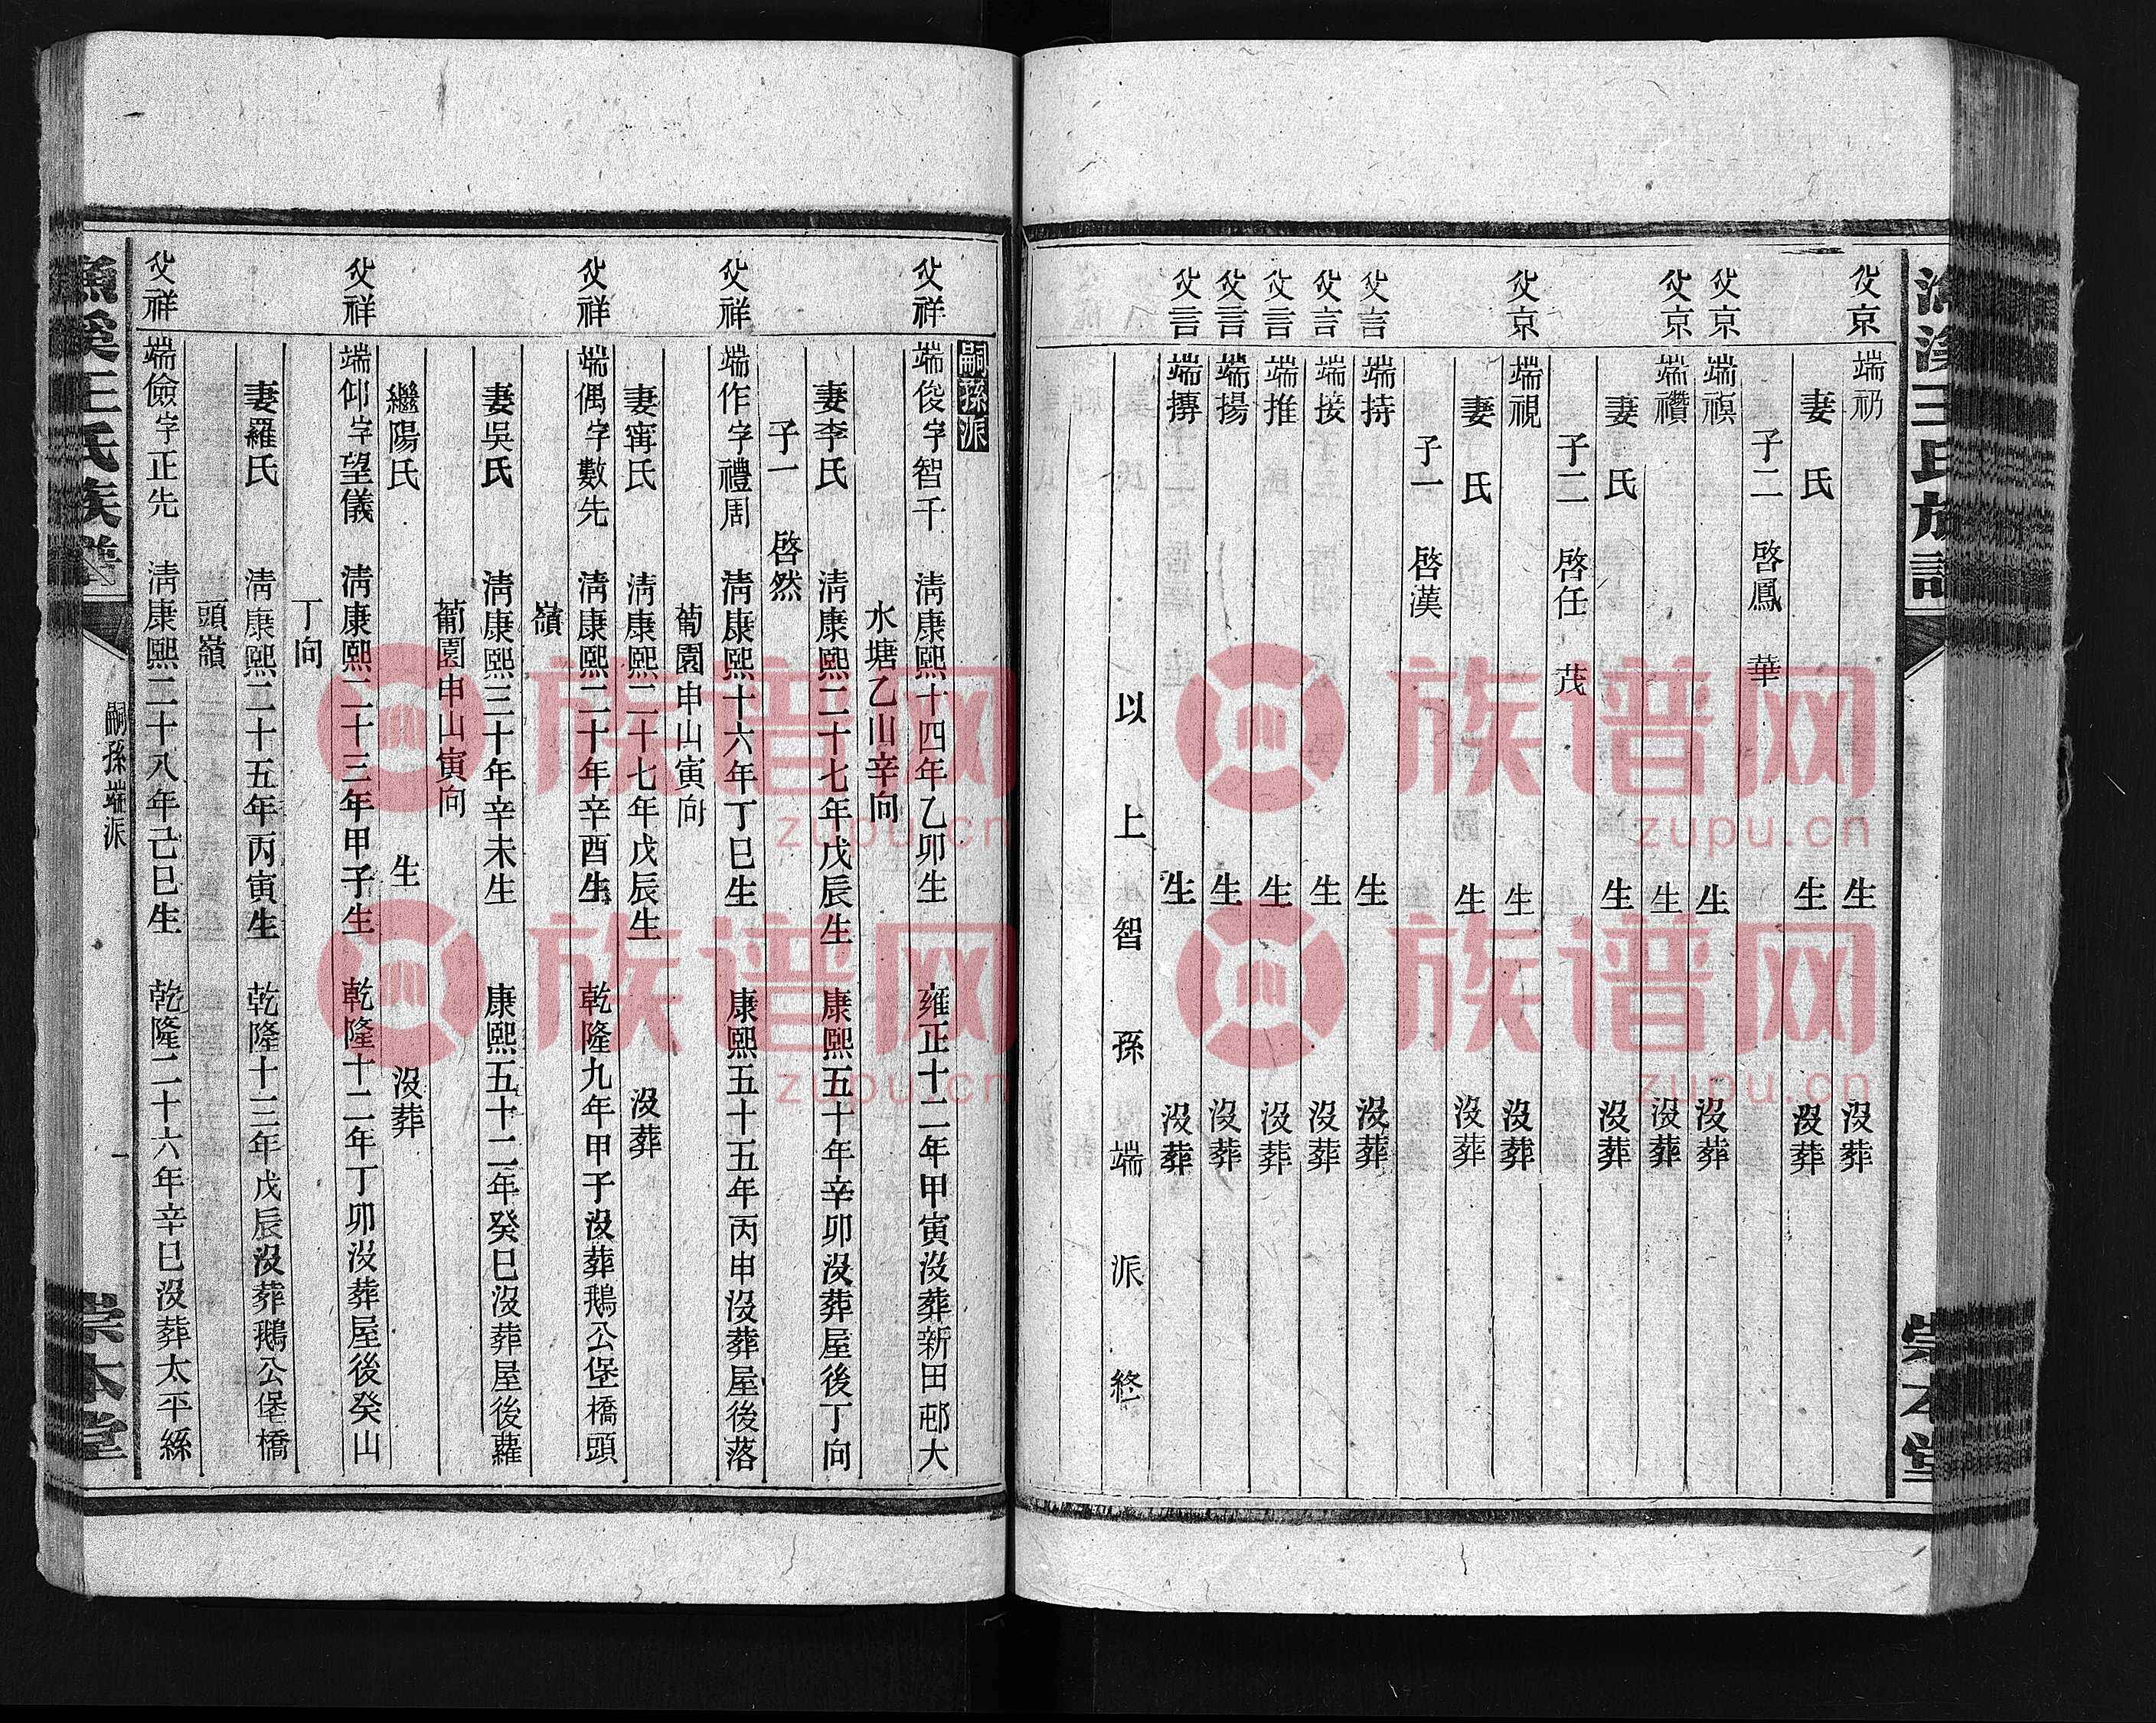 漁溪王氏族譜
崇本堂
父京
端礽 生 沒葬
妻 氏 生 沒葬
子二 啓鳳 華
父京
端禎 生 沒葬
父京
端禶 生 沒葬
妻 氏 生 沒葬
子二 啓任 茂
父京
端視 生 沒葬
妻 氏 生 沒葬
子一 啓漢
父言
端持 生 沒葬
父言
端接 生 沒葬
父言
端推 生 沒葬
父言
端揚 生 沒葬
父言
端摶 生 沒葬
以上智孫端派終
嗣孫派
父祥
端俊字智千 清康熙十四年乙卯生 雍正十二年甲寅沒葬新田邨大
水塘乙山辛向
妻李氏 清康熙二十七年戊辰生 康熙五十年辛卯沒葬屋後丁向
子一 啓然
父祥
端作字禮周 清康熙十六年丁巳生 康熙五十五年丙申沒葬屋後落
蔔園申山寅向
妻甯氏 清康熙二十七年戊辰生 沒葬
父祥
端偶字數先 清康熙二十年辛酉生 乾隆九年甲子沒葬鵝公堡橋頭
嶺
妻吳氏 清康熙三十年辛未生 康熙五十二年癸巳沒葬屋後蘿
蔔園申山寅向
繼陽氏 生 沒葬
父祥
端仰字望儀 清康熙二十三年甲子生 乾隆十二年丁卯沒葬屋後癸山
丁向
妻羅氏 清康熙二十五年丙寅生 乾隆十三年戊辰沒葬鵝公堡橋
頭嶺
父祥
端儉字正先 清康熙二十八年己巳生 乾隆二十六年辛巳沒葬太平緜
漁溪王氏族譜
嗣孫端派
一
崇本堂
族谱网
zupu.cn
族谱网
zupu.cn
族谱网
zupu.cn
族谱网
zupu.cn